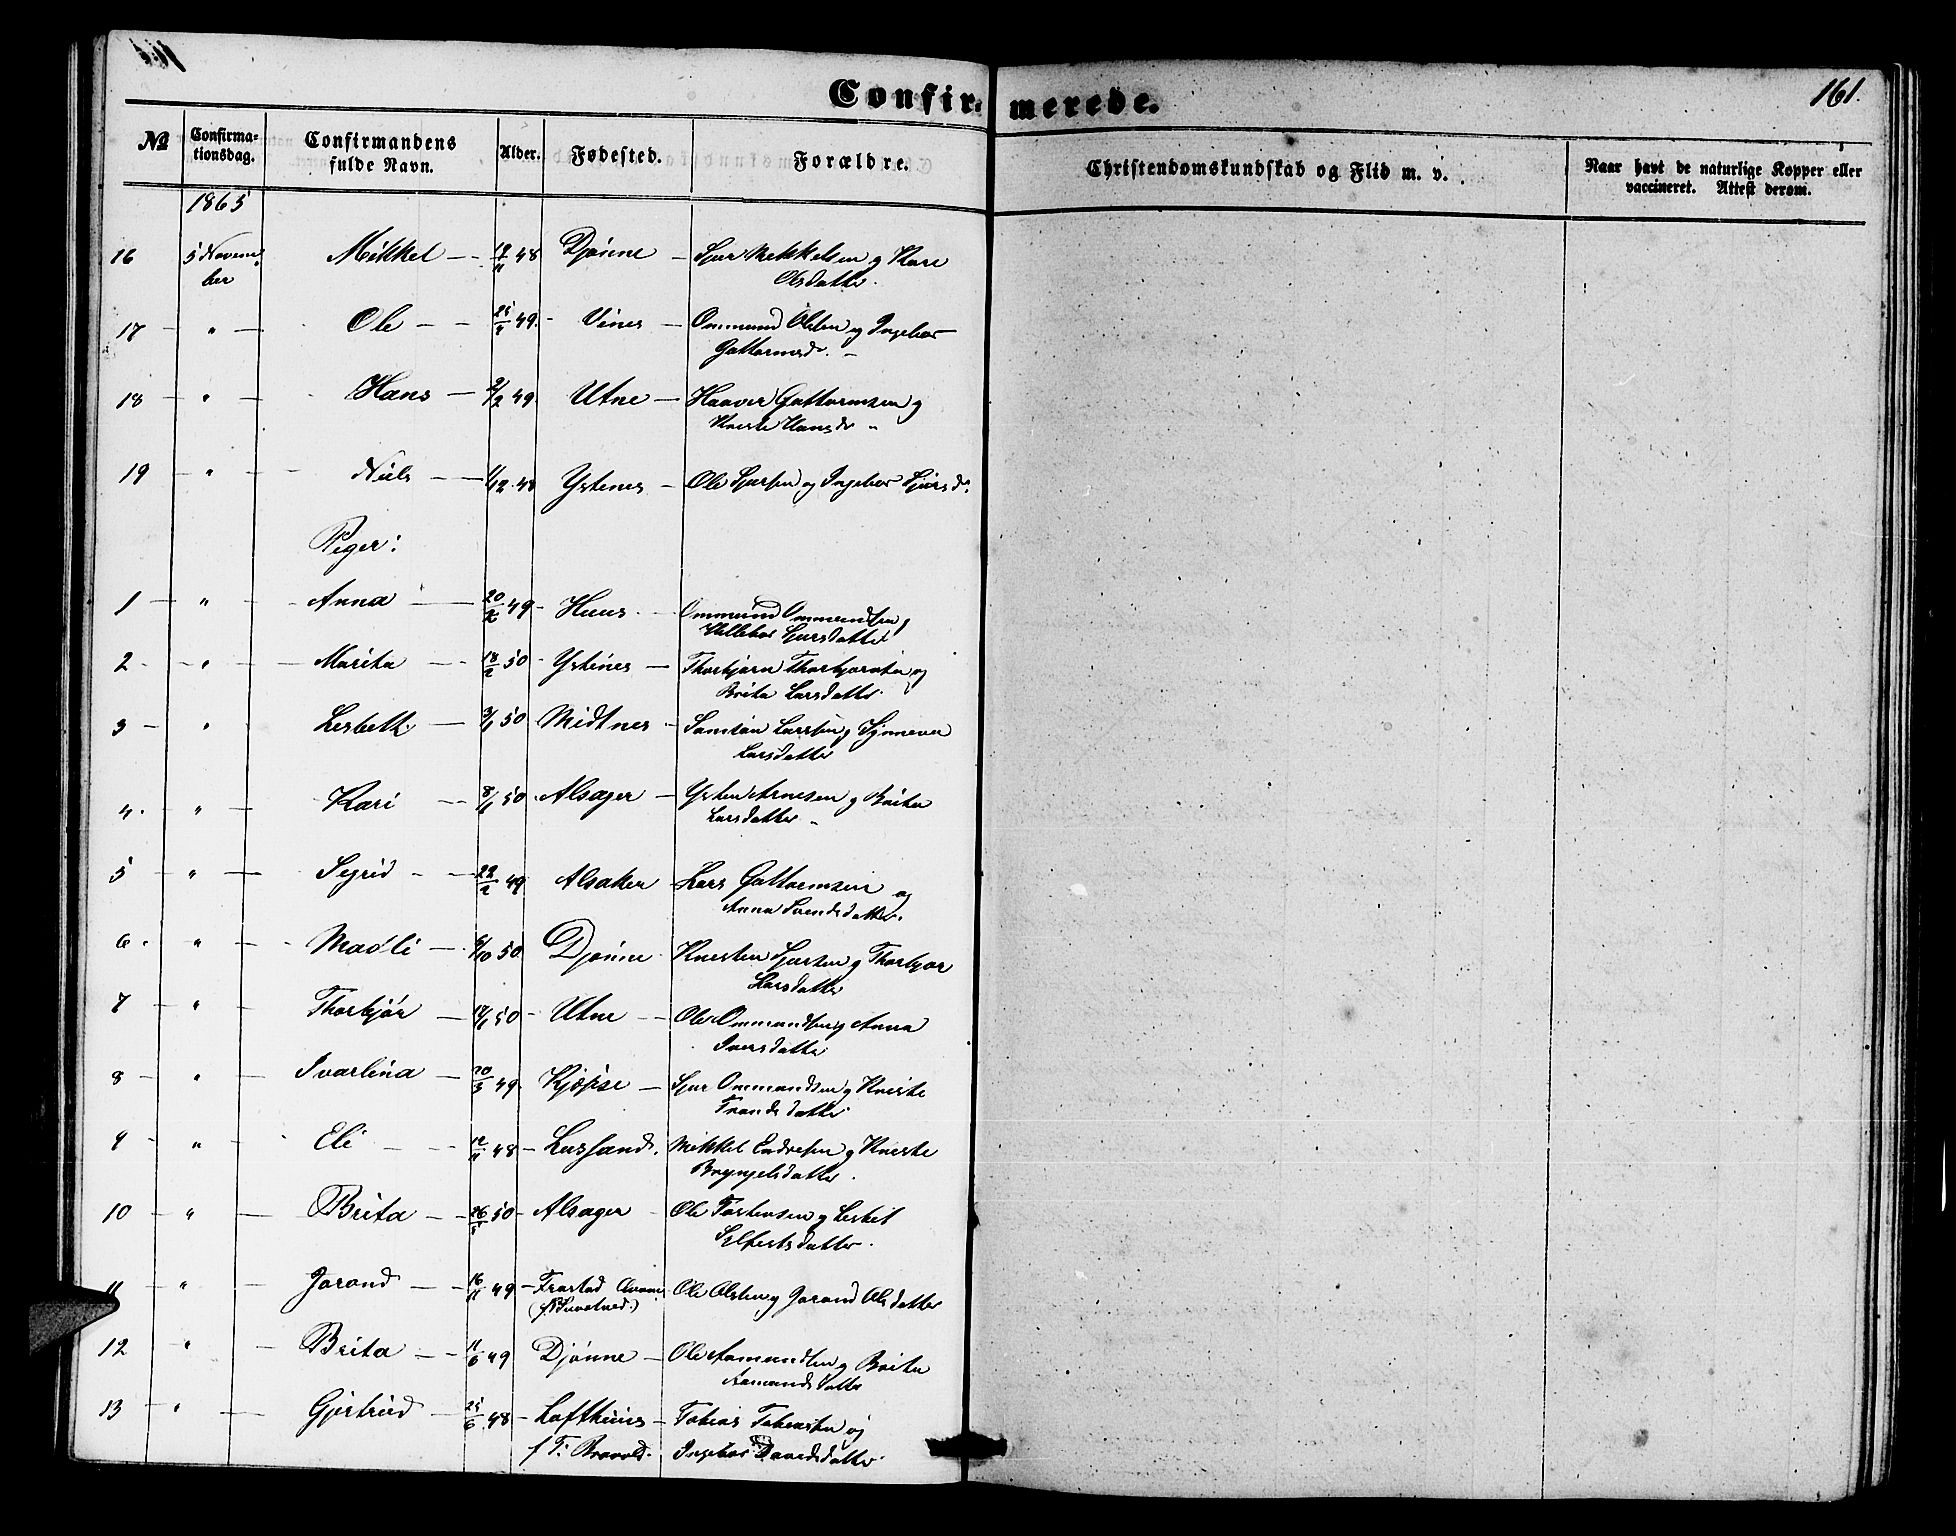 Confirmerede.
161.
№ Confirmationsdag. Confirmandens fulde Navn. Alder. Fødested. Forældre. Christendomskundskab og Flid m. v. Naar havt de naturlige Kopper eller vaccineret. Attest derom.
1865
16 5 November Mikkel 48 Djønne Sjur Mikkelsen og Kari
Olsdatter.
17 " Ole 49. Vines Ommund Olsen og Ingebor
Guttormsd.
18 " Hans 2/2 49 Utne Haaver Guttormsen og
Hansd.
19 " Niels 1/12 48 Ystenes Ole Sjursen og Ingebor Sjursd.
Piger:
1 " Anna 20/2 49 Huus Ommund Ommundsen og
Sjursdatter
2 " Marita 18/2 50 Ystenes Thorbjørn Thorbjørnsen og
Brita Larsdatter.
3 " Lisbeth 3/1 50 Midtnes Samson Larssen og Synneva
Larsdatter
4. " Kari 8/1 50 Alsager Ysten Arnesen og Brita
Larsdatter
5 " Sigrid 22/2 49 Alsaker Lars Guttormsen og
Anna Svendsdatter.
6. " Madli 50 Djønne Knesten Sjursen og Thorbjør
Larsdatter
7 " Thorbjør 50 Utne Ole Ommundsen og Anna
Iversdatter
8 " Ivarlina 20/3 49. Kjepse Sjur Ommundsen og
Trondsdatter
9 " Eli 12/11 48 Lussand. Mikkel Endresen og
Bryngelsdatter.
10 " Brita 50 Alsager Ole Torstensen og Lisbet
datter.
11 " Jorand 16/11 49 Ole Olsen og Jorand Olsdatter
12 " Brita 11/6 49 Djønne Ole Aamundsen og Brita
Aamundsdatter
13 " Gjertrud 25/6 48 Lofthuus Tobias Tobiassen og
Ingebor Davidsdatter.